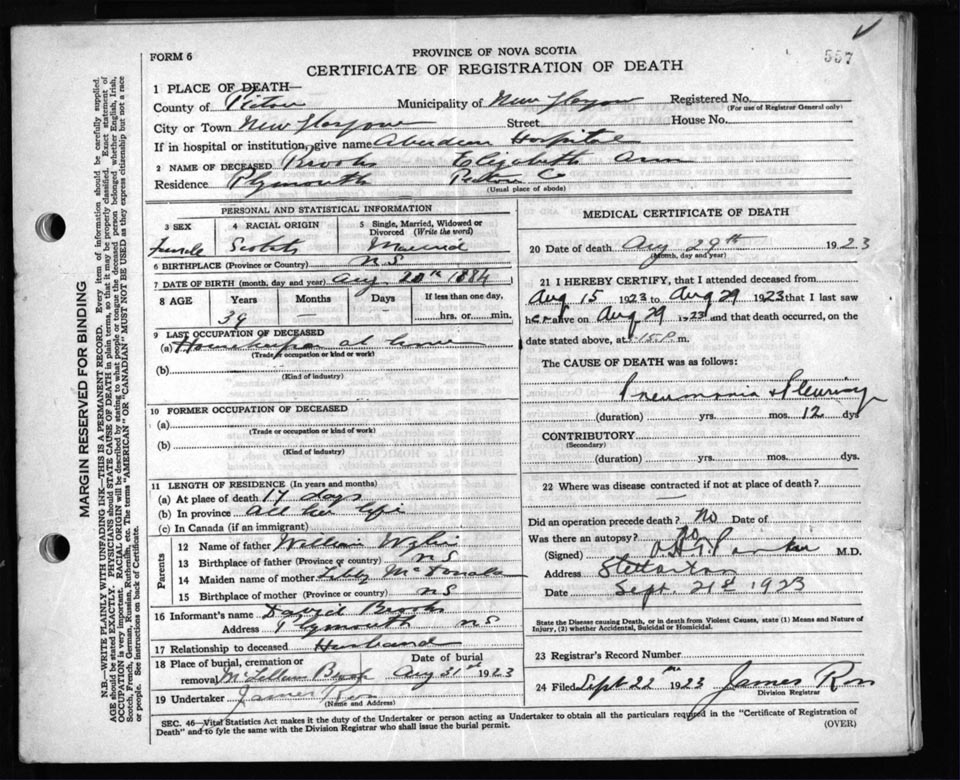 557
FORM 6
PROVINCE OF NOVA SCOTIA
CERTIFICATE OF REGISTRATION OF DEATH
1 PLACE OF DEATH—
County of Pictou Municipality of New Glasgow Registered No.
(For use of Registrar General only)
City or Town New Glasgow Street House No.
If in hospital or institution, give name Aberdeen Hospital
2 NAME OF DECEASED Brooks Elizabeth Ann
Residence Plymouth Pictou C
(Usual place of abode)
PERSONAL AND STATISTICAL INFORMATION
3 SEX 4 RACIAL ORIGIN 5 Single, Married, Widowed or Divorced (Write the word)
Female Scotch Married
6 BIRTHPLACE (Province or Country) N S
7 DATE OF BIRTH (month, day and year) Aug 20th 1884
8 AGE Years Months Days If less than one day,
39 — — hrs. or min.
9 LAST OCCUPATION OF DECEASED
(a) Housekeeper at home
(Trade or occupation or kind or work)
(b)
(Kind of industry)
10 FORMER OCCUPATION OF DECEASED
(a)
(Trade or occupation or kind of work)
(b)
(Kind of industry)
11 LENGTH OF RESIDENCE (In years and months)
(a) At place of death 17 days
(b) In province all her life
(c) In Canada (if an immigrant)
Parents
12 Name of father William
13 Birthplace of father (Province or country) N S
14 Maiden name of mother
15 Birthplace of mother (Province or country) N S
16 Informant's name David Brooks
Address Plymouth N S
17 Relationship to deceased Husband
18 Place of burial, cremation or removal McLellans Brook Date of burial Aug 31st 1923
19 Undertaker James
(Name and Address)
MEDICAL CERTIFICATE OF DEATH
20 Date of death Aug 29th 1923
(Month, day and year)
21 I HEREBY CERTIFY, that I attended deceased from
Aug 15 1923 to Aug 29 1923 that I last saw
her alive on Aug 29 1923 and that death occurred, on the
date stated above, at m.
The CAUSE OF DEATH was as follows:
Pneumonia & Pleurisy
(duration) yrs. mos. 12 dys
CONTRIBUTORY
(Secondary)
(duration) yrs. mos. dys.
22 Where was disease contracted if not at place of death?
—
Did an operation precede death? No Date of
Was there an autopsy? No
(Signed) M.D.
Address Stellarton
Date Sept. 21st 1923
State the Disease causing Death, or in death from Violent Causes, state (1) Means and Nature of Injury, (2) whether Accidental, Suicidal or Homicidal.
23 Registrar's Record Number
24 Filed Sept 22nd 1923 James Ross
Division Registrar
SEC. 46—Vital Statistics Act makes it the duty of the Undertaker or person acting as Undertaker to obtain all the particulars required in the "Certificate of Registration of
Death" and to fyle the same with the Division Registrar who shall issue the burial permit.
(OVER)
MARGIN RESERVED FOR BINDING
N.B.—WRITE PLAINLY WITH UNFADING INK—THIS IS A PERMANENT RECORD. Every item of information should be carefully supplied.
AGE should be stated EXACTLY. PHYSICIANS should STATE CAUSE OF DEATH in plain terms, so that it may be properly classified. Exact statement of
OCCUPATION is very important. RACIAL ORIGIN will be described by stating to what people or tongue the deceased person belonged whether English, Irish,
Scotch, French, German, Russian, Ruthenian, etc. The terms "AMERICAN" OR "CANADIAN" MUST NOT BE USED as they express citizenship but not a race
or people. See instructions on back of Certificate.